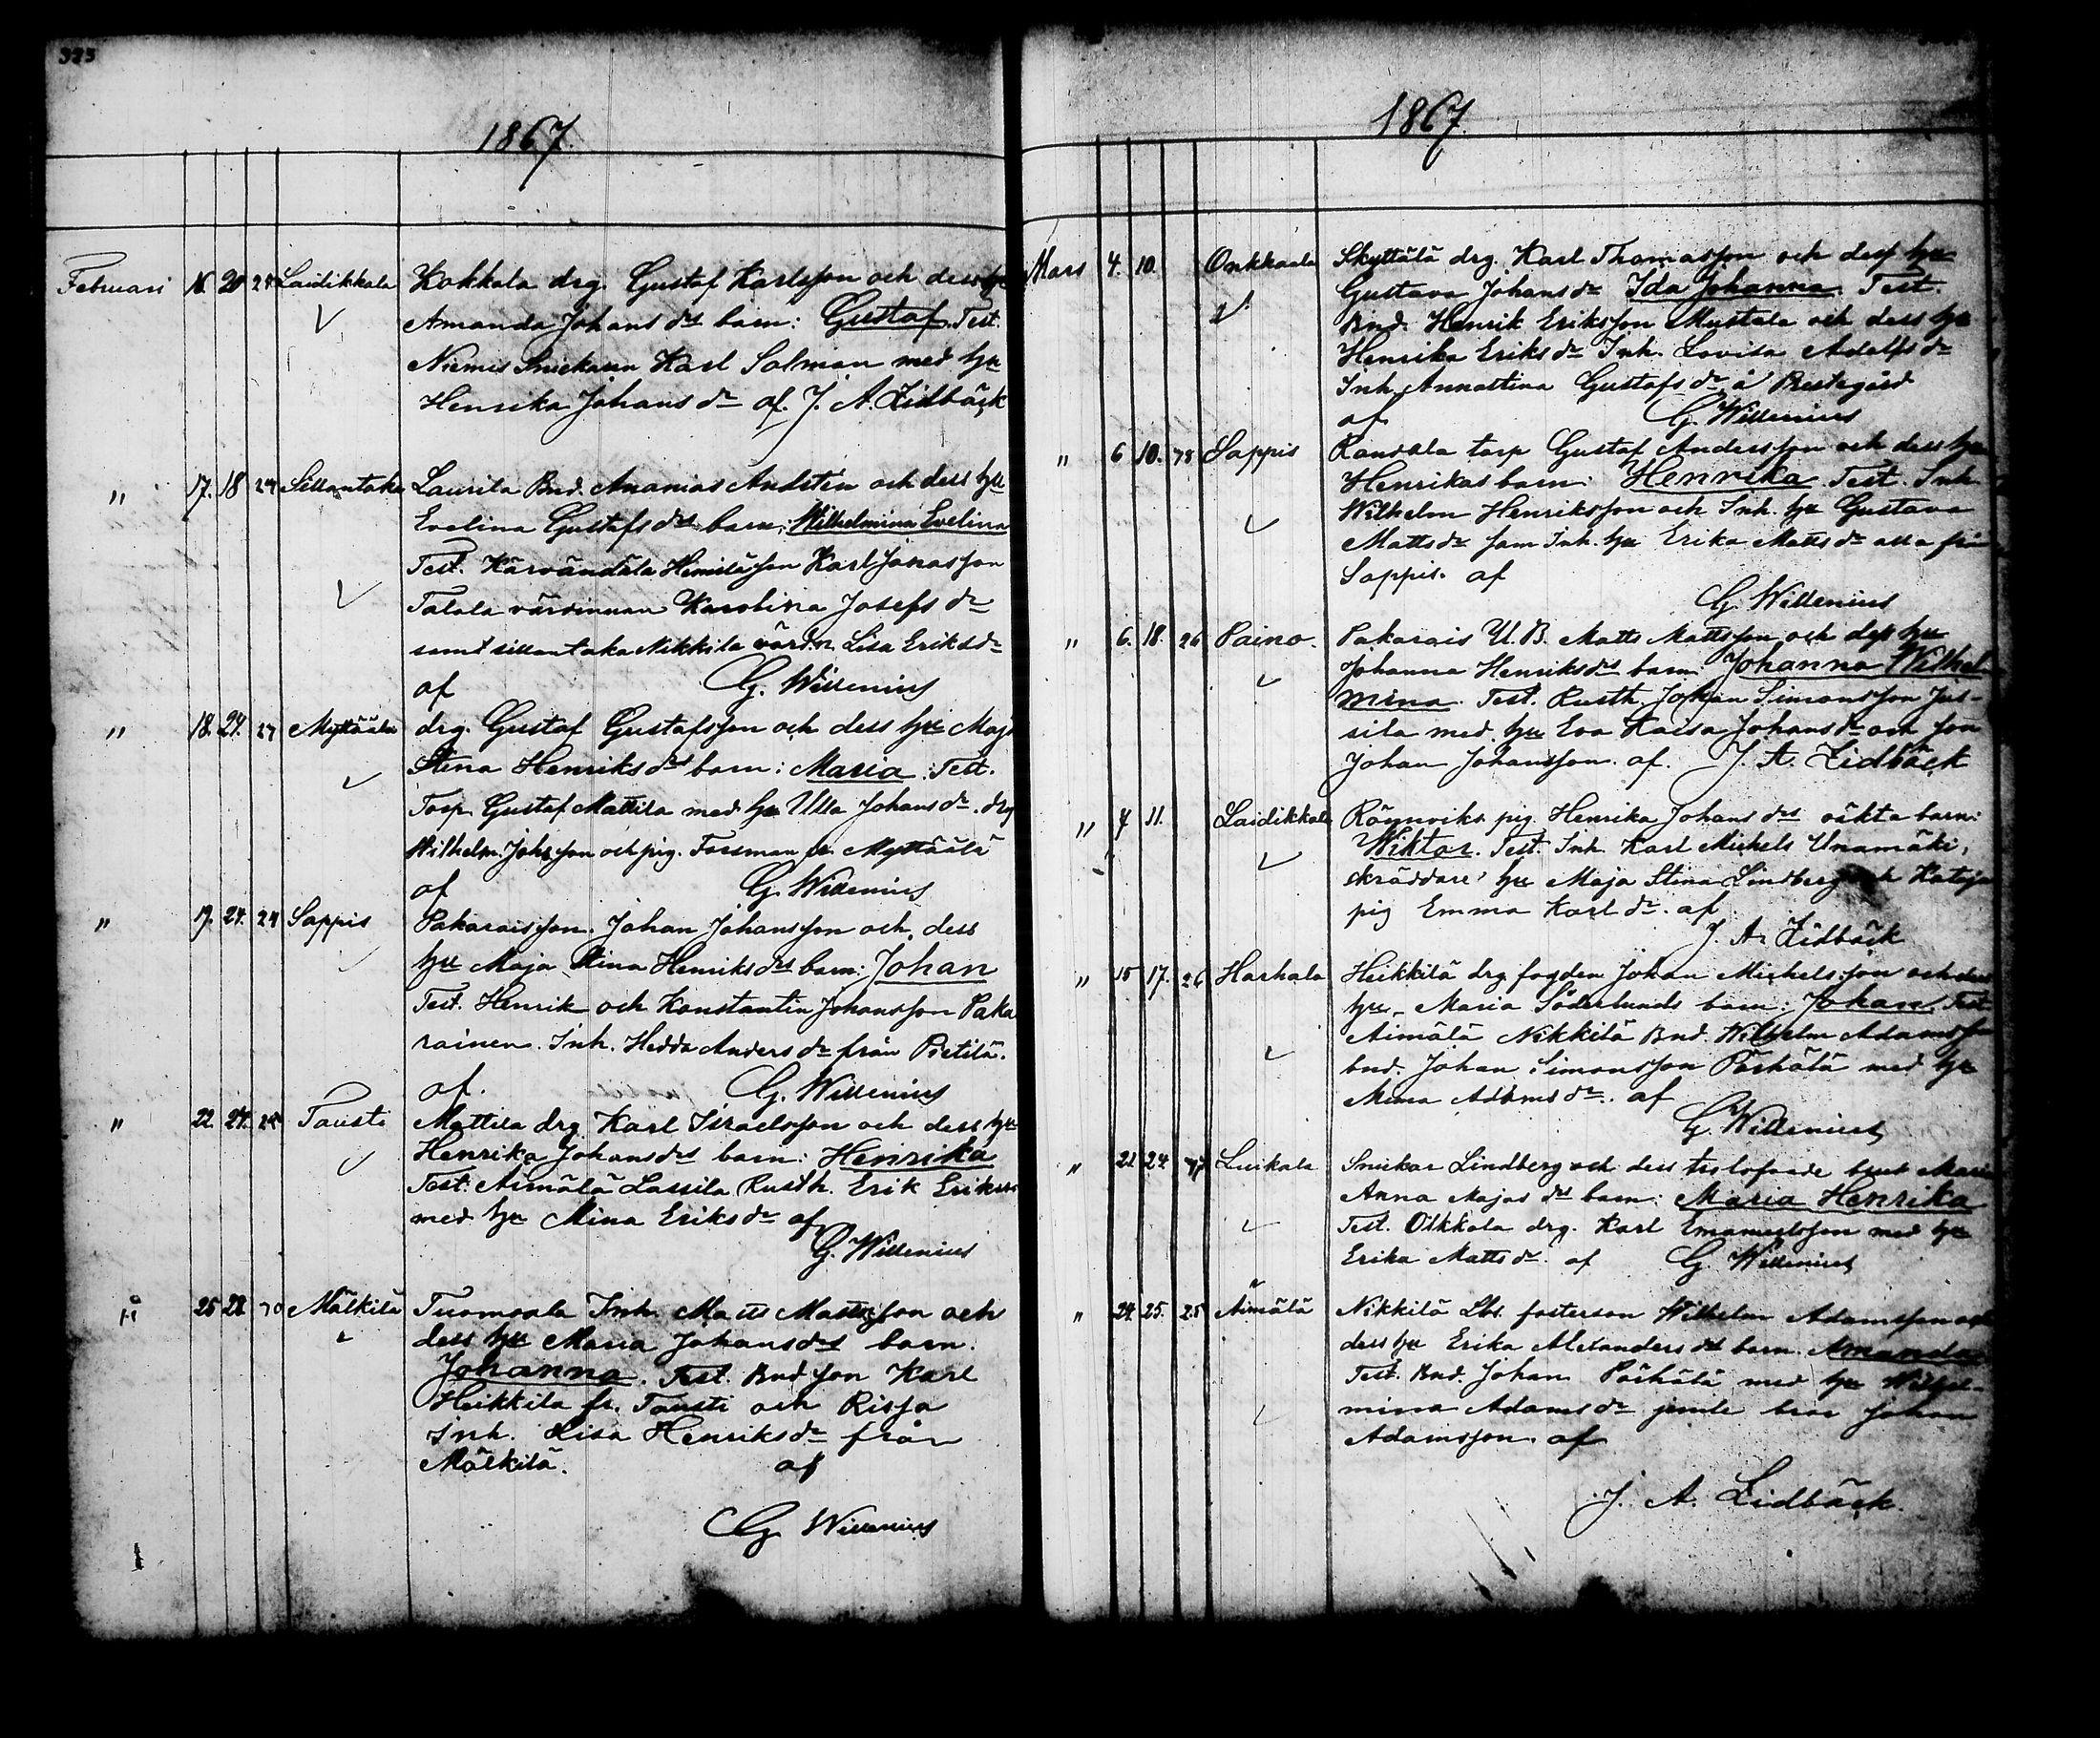 323
1867.
Februari 16. 20 25 Laidikkala Kokkala drg. Gustaf Karlsson och dess hu
Amanda Johans drs barn: Gustaf. Test.
Niemis Snickaren Karl Salman med hu
Henrika Johans dr af. J. A. Lidbäck
" 17. 18 24 Sillantaka Laurila Bnd. Ananias Andstén och dess hu
Evelina Gustafs drs barn: Wilhelmina Evelina
Test. Karl Jonasson
Talala värdinnan Karolina Josefs dr
samt sillantaka Nikkila värd:n Lisa Eriksdr
af G. Willenius
" 18. 24. 27 Myttäälä drg. Gustaf Gustafsson och dess hu Maja
Stina Henriks drs barn: Maria. Test.
Torp. Gustaf Mattila med hu Ulla Johans dr. drg
Wilhelm Johsson och pig. Forsman fr. Myttäälä
af G. Willenius
" 19. 24. 24 Sappis Pakaraisson. Johan Johansson och dess
hu Maja Stina Henriks drs barn: Johan
Test. Henrik och Konstantin Johansson Paka
rainen. Inh. Hedda Anders dr från Pietilä.
af. G. Willenius
" 22. 24. 24 Tausti Mattila drg. Karl Israelsson och dess hu
Henrika Johansdrs barn: Henrika
Test. Aimälä Lassila Rusth. Erik Eriksson
med hu Mina Eriks dr af
G. Willenius
" 25 28 30 Mälkilä Tuomoala Inh. Matts Mattsson och
dess hu Maria Johansdrs barn.
Johanna. Test. Bnd son Karl
Heikkila fr. Tausti och Risfa
Inh. Lisa Henriks dr från
Mälkilä. af
G. Willenius
1867.
Mars 4. 10. Onkkaala Skyttälä drg. Karl Thomasson och dess hu
Gustava Johans dr Ida Johanna. Test.
Bnd. Henrik Eriksson Mustala och dess hu
Henrika Eriks dr Inh. Lovisa Adolfs dr
Inh. Annastina Gustafs dr å Prestegård
af G. Willenius
" 6 10. 78 Sappis Randala torp Gustaf Andersson och dess hu
Henrikas barn: Henrika. Test. Inh.
Wilhelm Henriksson och Inh. hu Gustava
Matts dr sam Inh. hu Erika Matts dr alla frå
Sappis. af
G. Willenius
" 6. 18. 26 Paino. Pakarais U. B. Matts Mattsson och dess hu
Johanna Henriksdrs barn Johanna Wilhel
mina. Test. Rusth. Johan Simonsson Jus-
sila med hu Eva Kaisa Johans dr och son
Johan Johansson. af. J. A. Lidbäck
" 7 11. Laidikkala pig. Henrika Johans drs oäkta barn:
Wiktor. Test. Inh. Karl Michels Unamäki,
skräddare hu Maja Stina Lindberg och Kataja
pig Emma Karl dr. af
J. A. Lidbäck
" 15 17. 26 Harhala Heikkilä drg fogden Johan Michelsson och dess
hu. Maria Söderlunds barn: Johan. Test
Aimälä Nikkilä Bnd. Wilhelm Adamsson
bnd. Johan Simonsson Pärhälä med hu
Mina Adams dr. af
G. Willenius
" 22 24 Luikala Snickar Lindberg och dess trolofvade brud Maria
Anna Majas drs barn: Maria Henrika
Test. Olkkola drg. Karl Emanuelsson med hu
Erika Matts dr. af G. Willenius
" 24. 25. 25 Aimälä Nikkilä Lbs. fosterson Wilhelm Adamsson och
dess hu Erika Alexanders drs barn. Amanda
Test. Bnd. Johan Pärhälä med hu Wilhel-
mina Adams dr jemte bror Johan
Adamsson. af
J. A. Lidbäck.